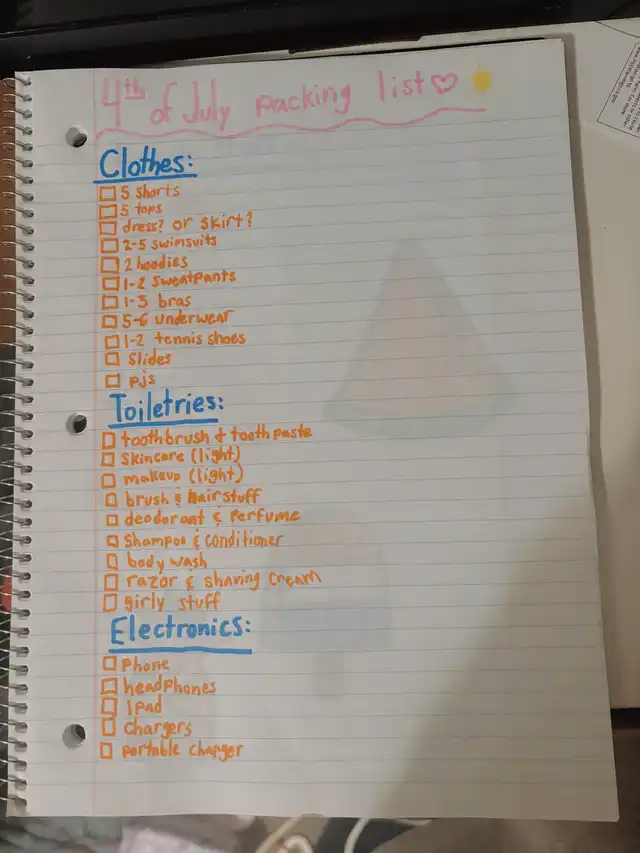 4th of July packing list♡
Clothes:
5 shorts
5 tops
dress? or skirt?
2-5 swimsuits
2 hoodies
1-2 sweatpants
1-3 bras
5-6 underwear
1-2 tennis shoes
slides
pjs
Toiletries:
toothbrush & toothpaste
skincare (light)
makeup (light)
brush & hairstuff
deodorant & perfume
shampoo & conditioner
body wash
razor & shaving cream
girly stuff
Electronics:
phone
headphones
ipad
chargers
portable charger